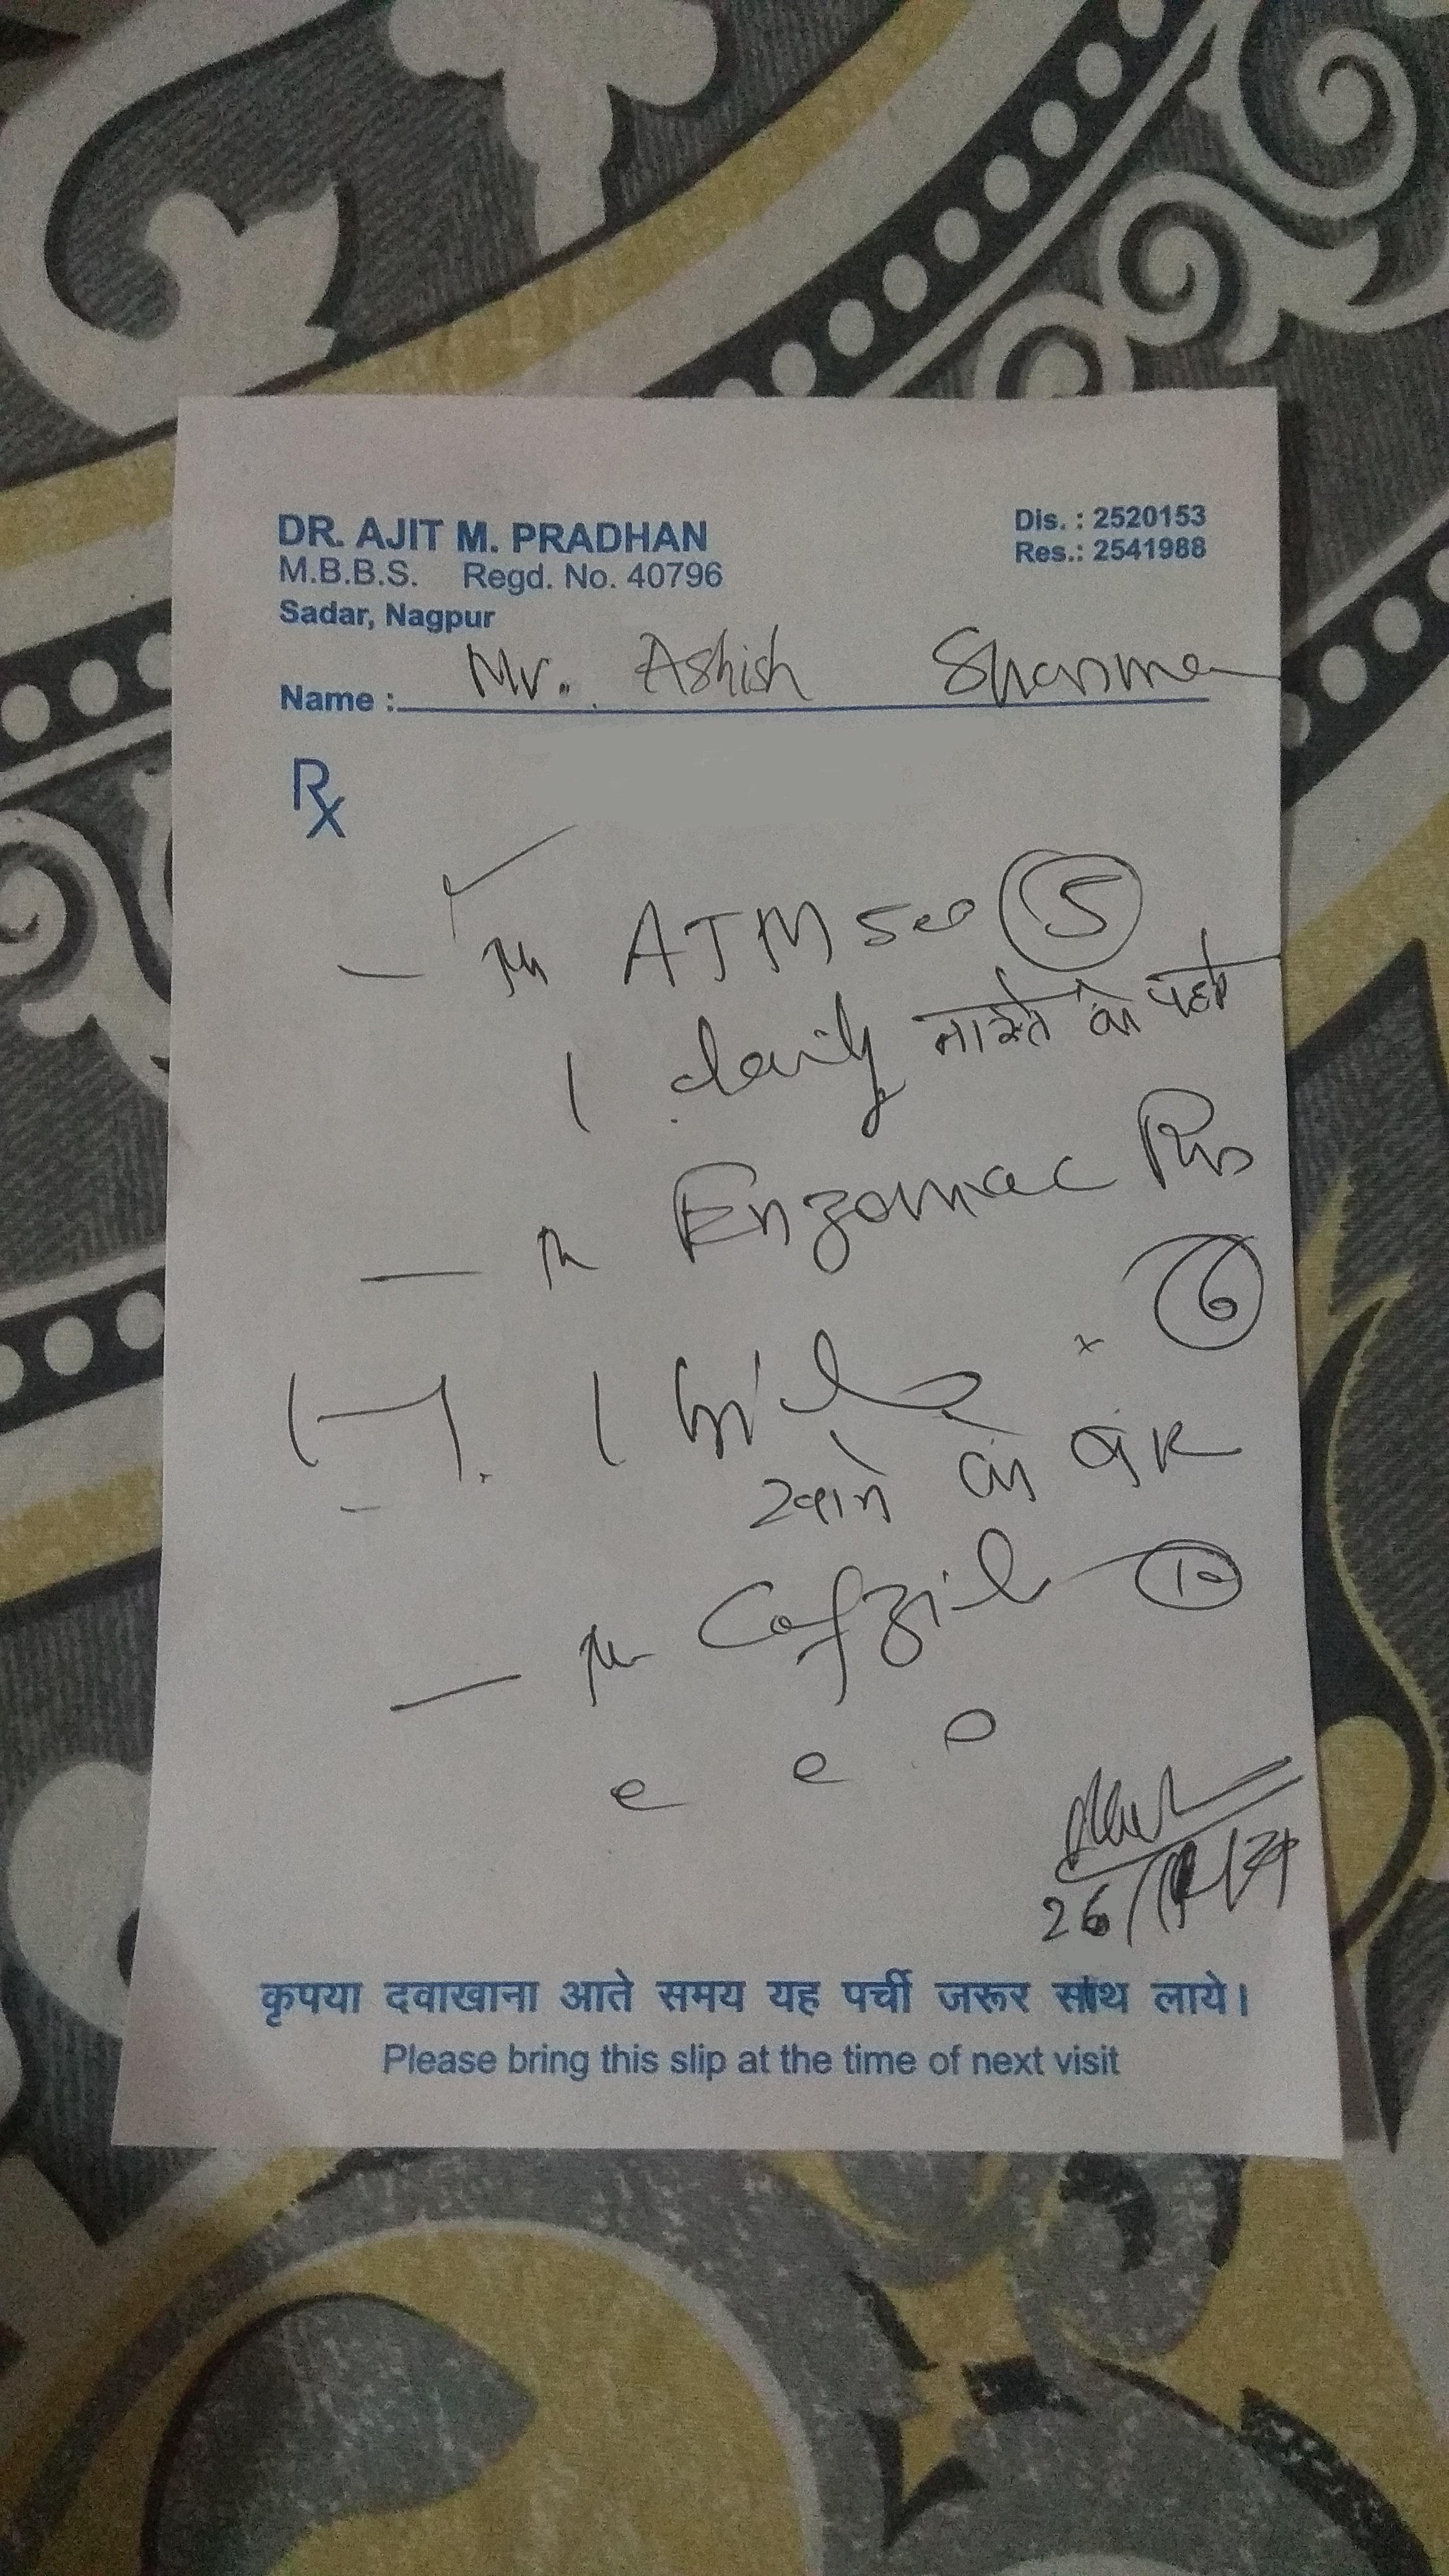 DR. AJIT M. PRADHAN
M.B.B.S. Regd. No. 40796
Sadar, Nagpur
Dis. : 2520153
Res.: 2541988
Name : Mr. Ashish Sharma
Rx
ATM 500 5
1 daily नास्ते के पहले
Enzomac Plus
6
1
खाने के बाद
Cefzil 10
कृपया दवाखाना आते समय यह पर्ची जरूर साथ लाये।
Please bring this slip at the time of next visit